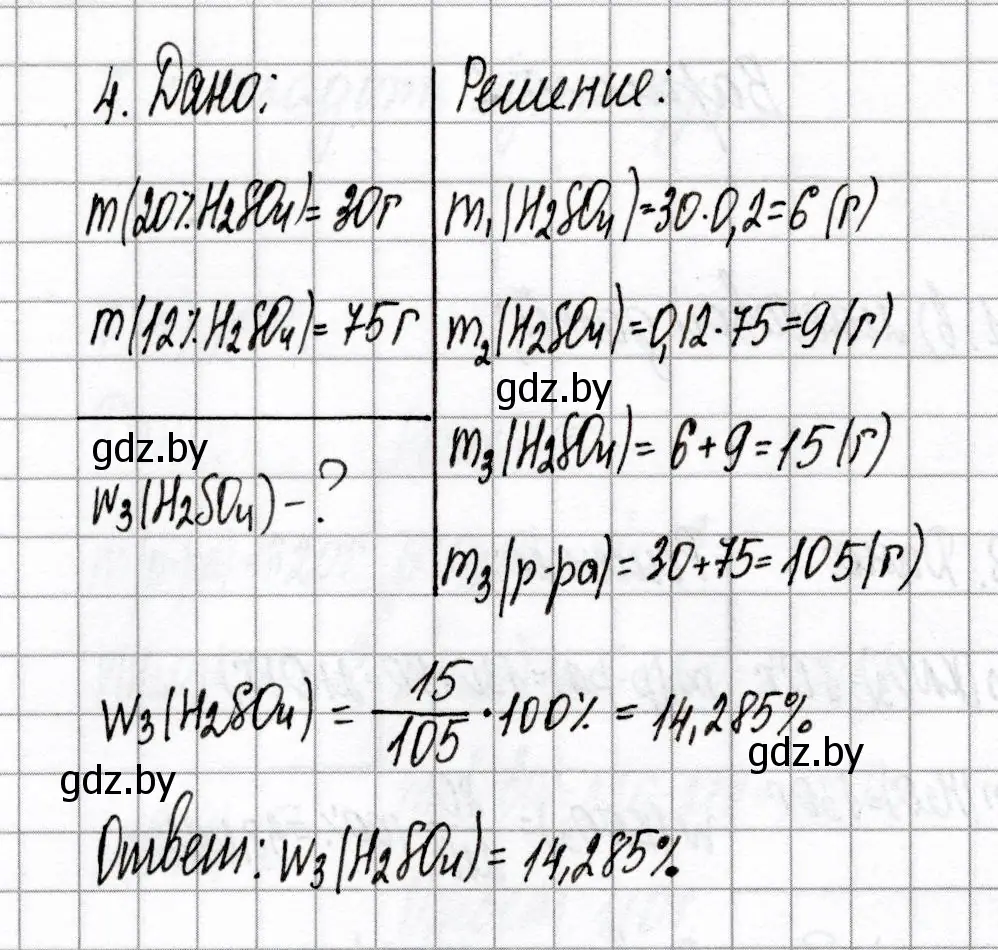 4. Дано:
m(20% H2SO4) = 30г
m(12% H2SO4) = 75г
gdz.by
w3(H2SO4) - ?
Решение:
m1(H2SO4) = 30·0,2 = 6 (г)
m2(H2SO4) = 0,12·75 = 9 (г)
gdz.by
m3(H2SO4) = 6 + 9 = 15 (г)
m3(р-ра) = 30+75 = 105 (г)
w3(H2SO4) = 15/105 · 100% = 14,285%
gdz.by
gdz.by
Ответ: w3(H2SO4) = 14,285%.